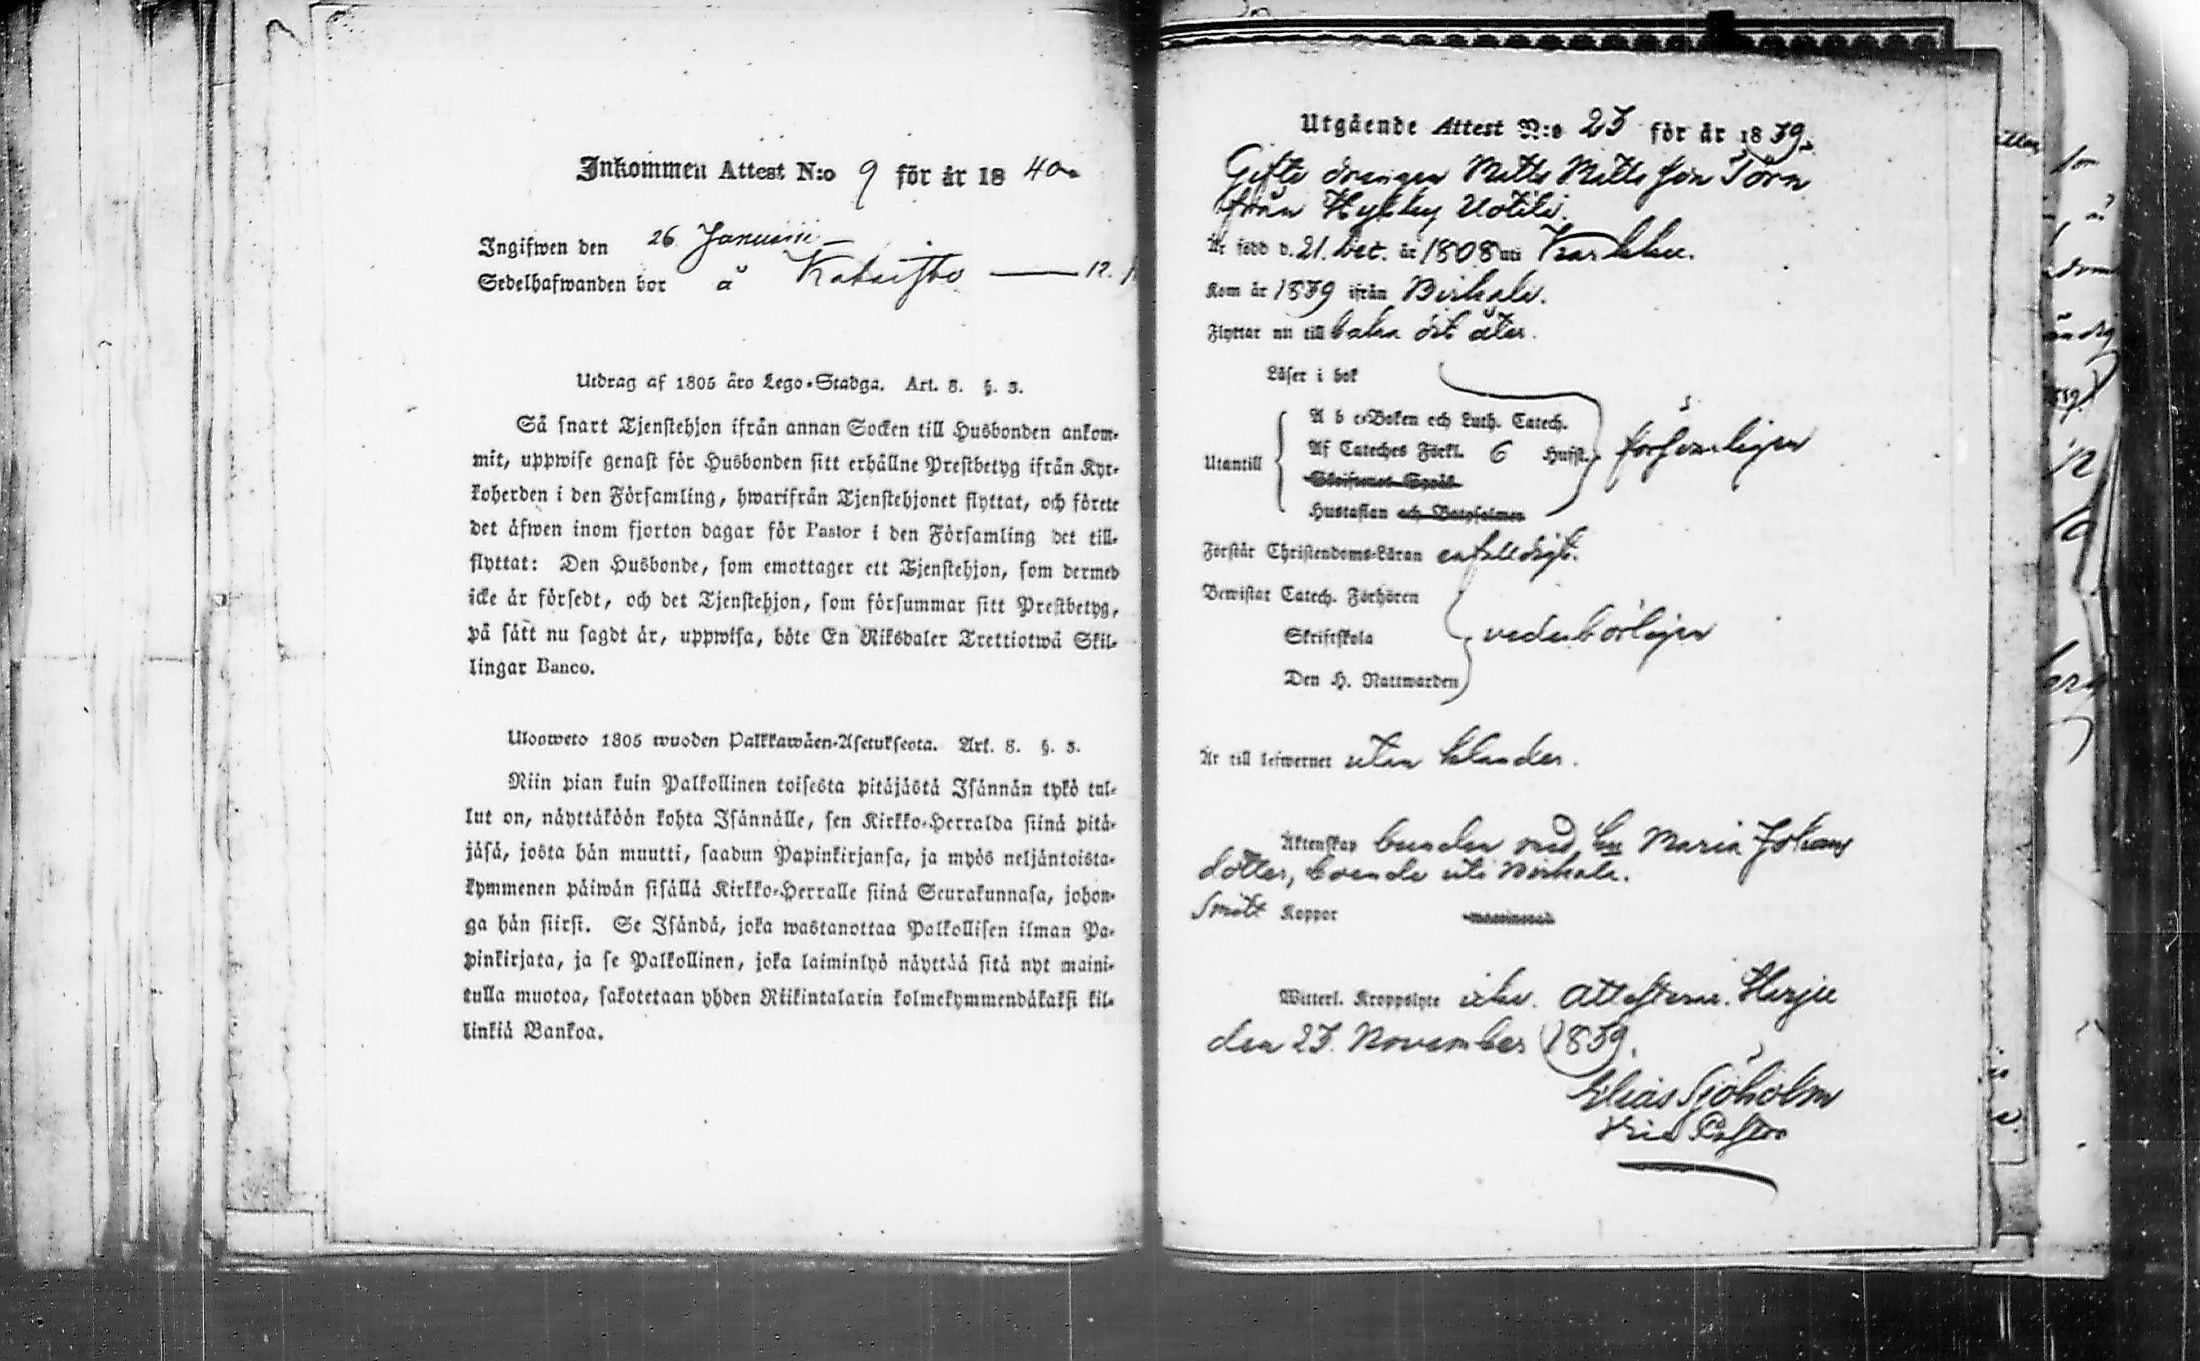 Inkommen Attest N:o 9 för år 18 40.
Ingifwen den 26 Januarii
Sedelhafwanden bor å 12.
Utdrag af 1805 åro Lego-Stadga. Art. 8. §. 3.
Så snart Tjenstehjon ifrån annan Socken till Husbonden ankom-
mit, uppwise genast för Husbonden sitt erhållne Prestbetyg ifrån Kyr-
koherden i den Församling, hwarifrån Tjenstehjonet flyttat, och förete
det äfwen inom fjorton dagar för Pastor i den Församling det till-
flyttat: Den Husbonde, som emottager ett Tjenstehjon, som dermed
icke är försedt, och det Tjenstehjon, som försummar sitt Prestbetyg,
på sätt nu sagdt är, uppwisa, böte En Riksdaler Trettiotwå Skil-
lingar Banco.
Uloosweto 1805 wuoden Palkkawäen-Asetuksesta. Art. 8. §. 3.
Niin pian kuin Palkollinen toisesta pitäjästä Isännän tykö tul-
lut on, näyttäköön kohta Isännälle, sen Kirkko-Herralda siinä pitä-
jäsä, josta hän muutti, saadun Papinkirjansa, ja myös neljäntoista-
kymmenen päiwän sisällä Kirkko-Herralle siinä Seurakunnasa, johon-
ga hän siirsi. Se Isändä, joka wastanottaa Palkollisen ilman Pa-
pinkirjata, ja se Palkollinen, joka laiminlyö näyttää sitä nyt maini-
tulla muotoa, sakotetaan yhden Riikintalarin kolmekymmendäkaksi kil-
linkiä Bankoa.
Utgående Attest N:o 23 för år 1839.
Gifte drengen Matts Matts son Törn
från Hykky Uotila.
Är född d. 21. Dec. år 1808 uti Karkku.
Kom år 1839 ifrån Birkala.
Flyttar nu till baka dit åter.
Läser i bok
A b c-Boken och Luth. Catech.
Utantill Af Cateches Förkl. 6 Hufst. försvarligen
Skriftenes Språk
Hustaflan och Botpsalmer
Förstår Christendoms-Läran enfalldigt.
Bewistat Catech. Förhören
Skriftskola vederbörligen
Den H. Nattwarden
Är till lefwernet utan klander.
Äktenskap bunden med hu Maria Johans
dotter, boende uti Birkala.
Smått Koppor vaccinerad
Witterl. Kroppslyte icke. Attesterar. Harju
den 23. November 1839.
Elias Sjöholm
Vice Pastor